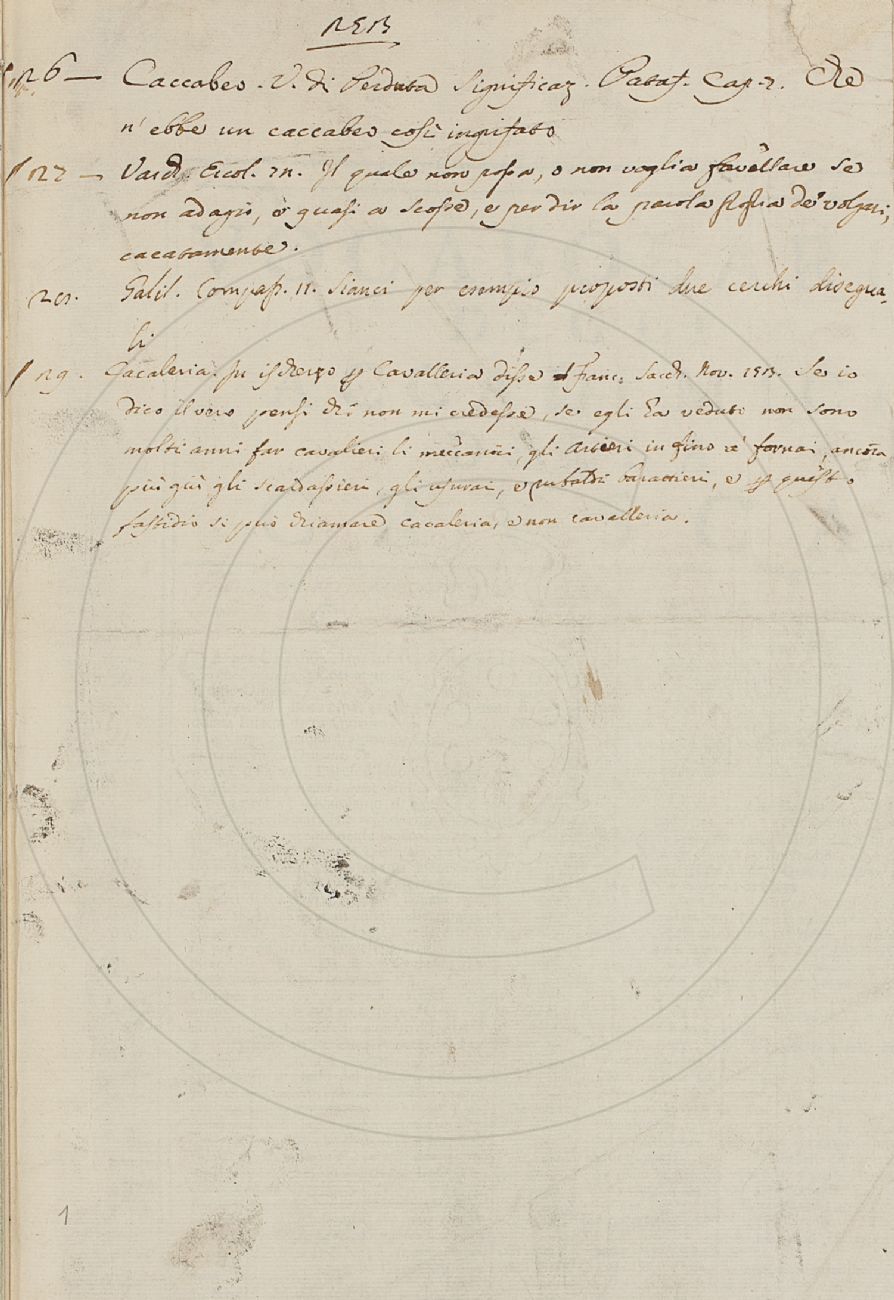 126 — Caccabeo. V. di Perduta Significaz. Pataf. Cap. 2. Che
n'ebbe un caccabeo così ingrifato
127 — Varch. Ercol. 71. Il quale non possa, o non voglia favellare se
non adagio, e quasi a scosse, e per dir la parola stessa de' volgari,
cacatamente.
Galil. Compass. 11. Sianci per esempio proposti due cerchi disegua-
li
129. Cacaleria. In ischerzo p Cavalleria disse Franc. Sacch. Nov. 153. Se io
dico il vero pensi chi non mi credesse, se egli ha veduto non sono
molti anni far cavalieri li meccanici, gli Artieri in fino a' fornai, ancora
più giù gli scardassieri, gli usurai, e rubaldi barattieri, e p questo
fastidio si può chiamare cacaleria, e non cavalleria.
1